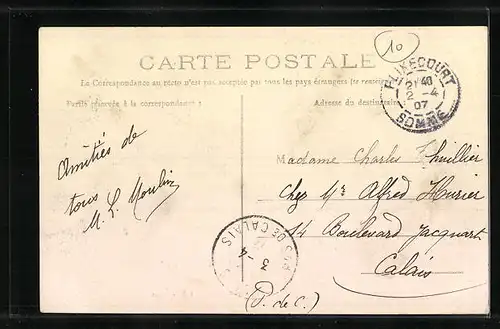 10
CARTE POSTALE
La Correspondance au recto n'est pas acceptée par tous les pays étrangers (se renseigner
Partie réservée à la correspondance :
Adresse du destinataire :
FLIXECOURT
40
22 -4
07
SOMME
Amitiés de
tous
M. L. Moulin
Madame Charles Thuillier
Chez Mr Alfred
14 Boulevard Jacquart
Calais
(P. de C.)
DE CALAIS
3 -4